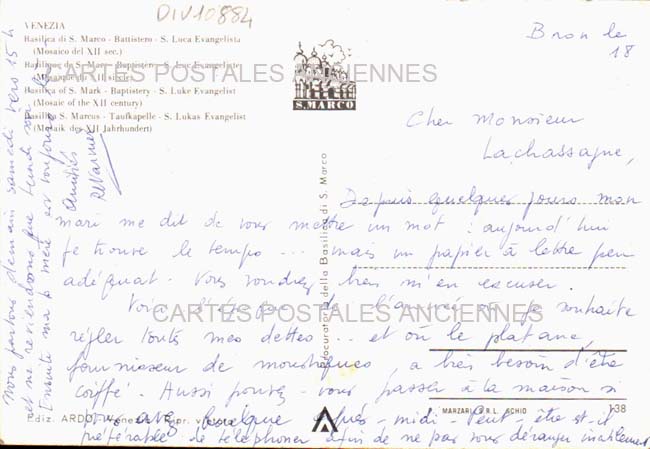 DIV10884
VENEZIA
Basilica di S. Marco - Battistero - S. Luca Evangelista
(Mosaico del XII sec.)
Basilique de S. Marc - Baptistery - S. Luc Evangelist
(Mosaïque du XII siècle)
Basilica of S. Mark - Baptistery - S. Luke Evangelist
(Mosaic of the XII century)
Basilika S. Marcus - Taufkapelle - S. Lukas Evangelist
(Mosaik des XII Jahrhundert)
CARTES POSTALES ANCIENNES
S. MARCO
Procuratoria della Basilica di S. Marco
Bron le
18
Cher Monsieur
Lachassagne,
Depuis quelques jours mon
mari me dit de vous mettre un mot : aujourd'hui
je trouve le temps ... mais un papier à lettre peu
adéquat. Vous voudrez bien m'en excuser.
Voici l'époque de l'année où je souhaite
régler toutes mes dettes ... et où le platane,
fournisseur de moustiques, a très besoin d'être
coiffé. Aussi pouvez-vous passer à la maison si
vous avez quelque après-midi. Peut-être est-il
préférable de téléphoner afin de ne pas vous déranger inutilement
CARTES POSTALES ANCIENNES
Nous partons demain samedi vers 15 h
et ne reviendrons que lundi soir
Ensuite ma mère est
Amitiés
Ediz. ARDO, Venezia - Repr. vietata
MARZARI S.R.L. SCHIO
138